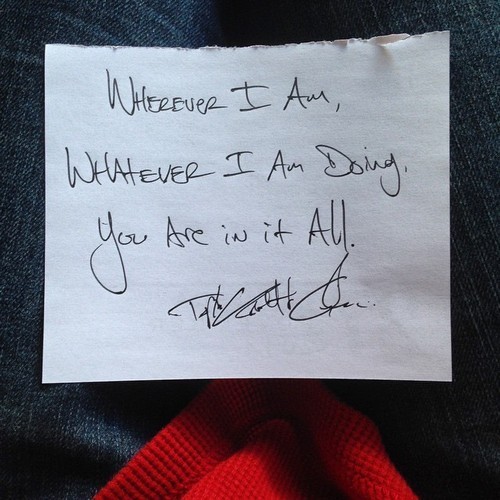 Wherever I Am,
Whatever I Am Doing.
You Are in it All.